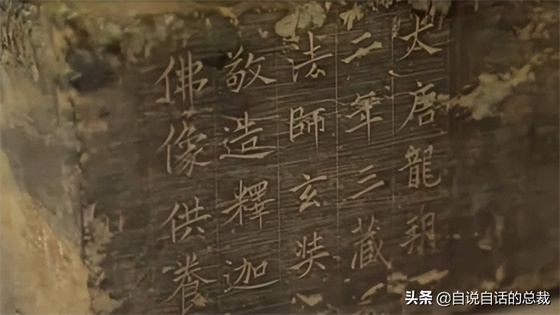 大唐龍朔
二年三藏
法師玄奘
敬造釋迦
佛像供養
头条 @自说自话的总裁